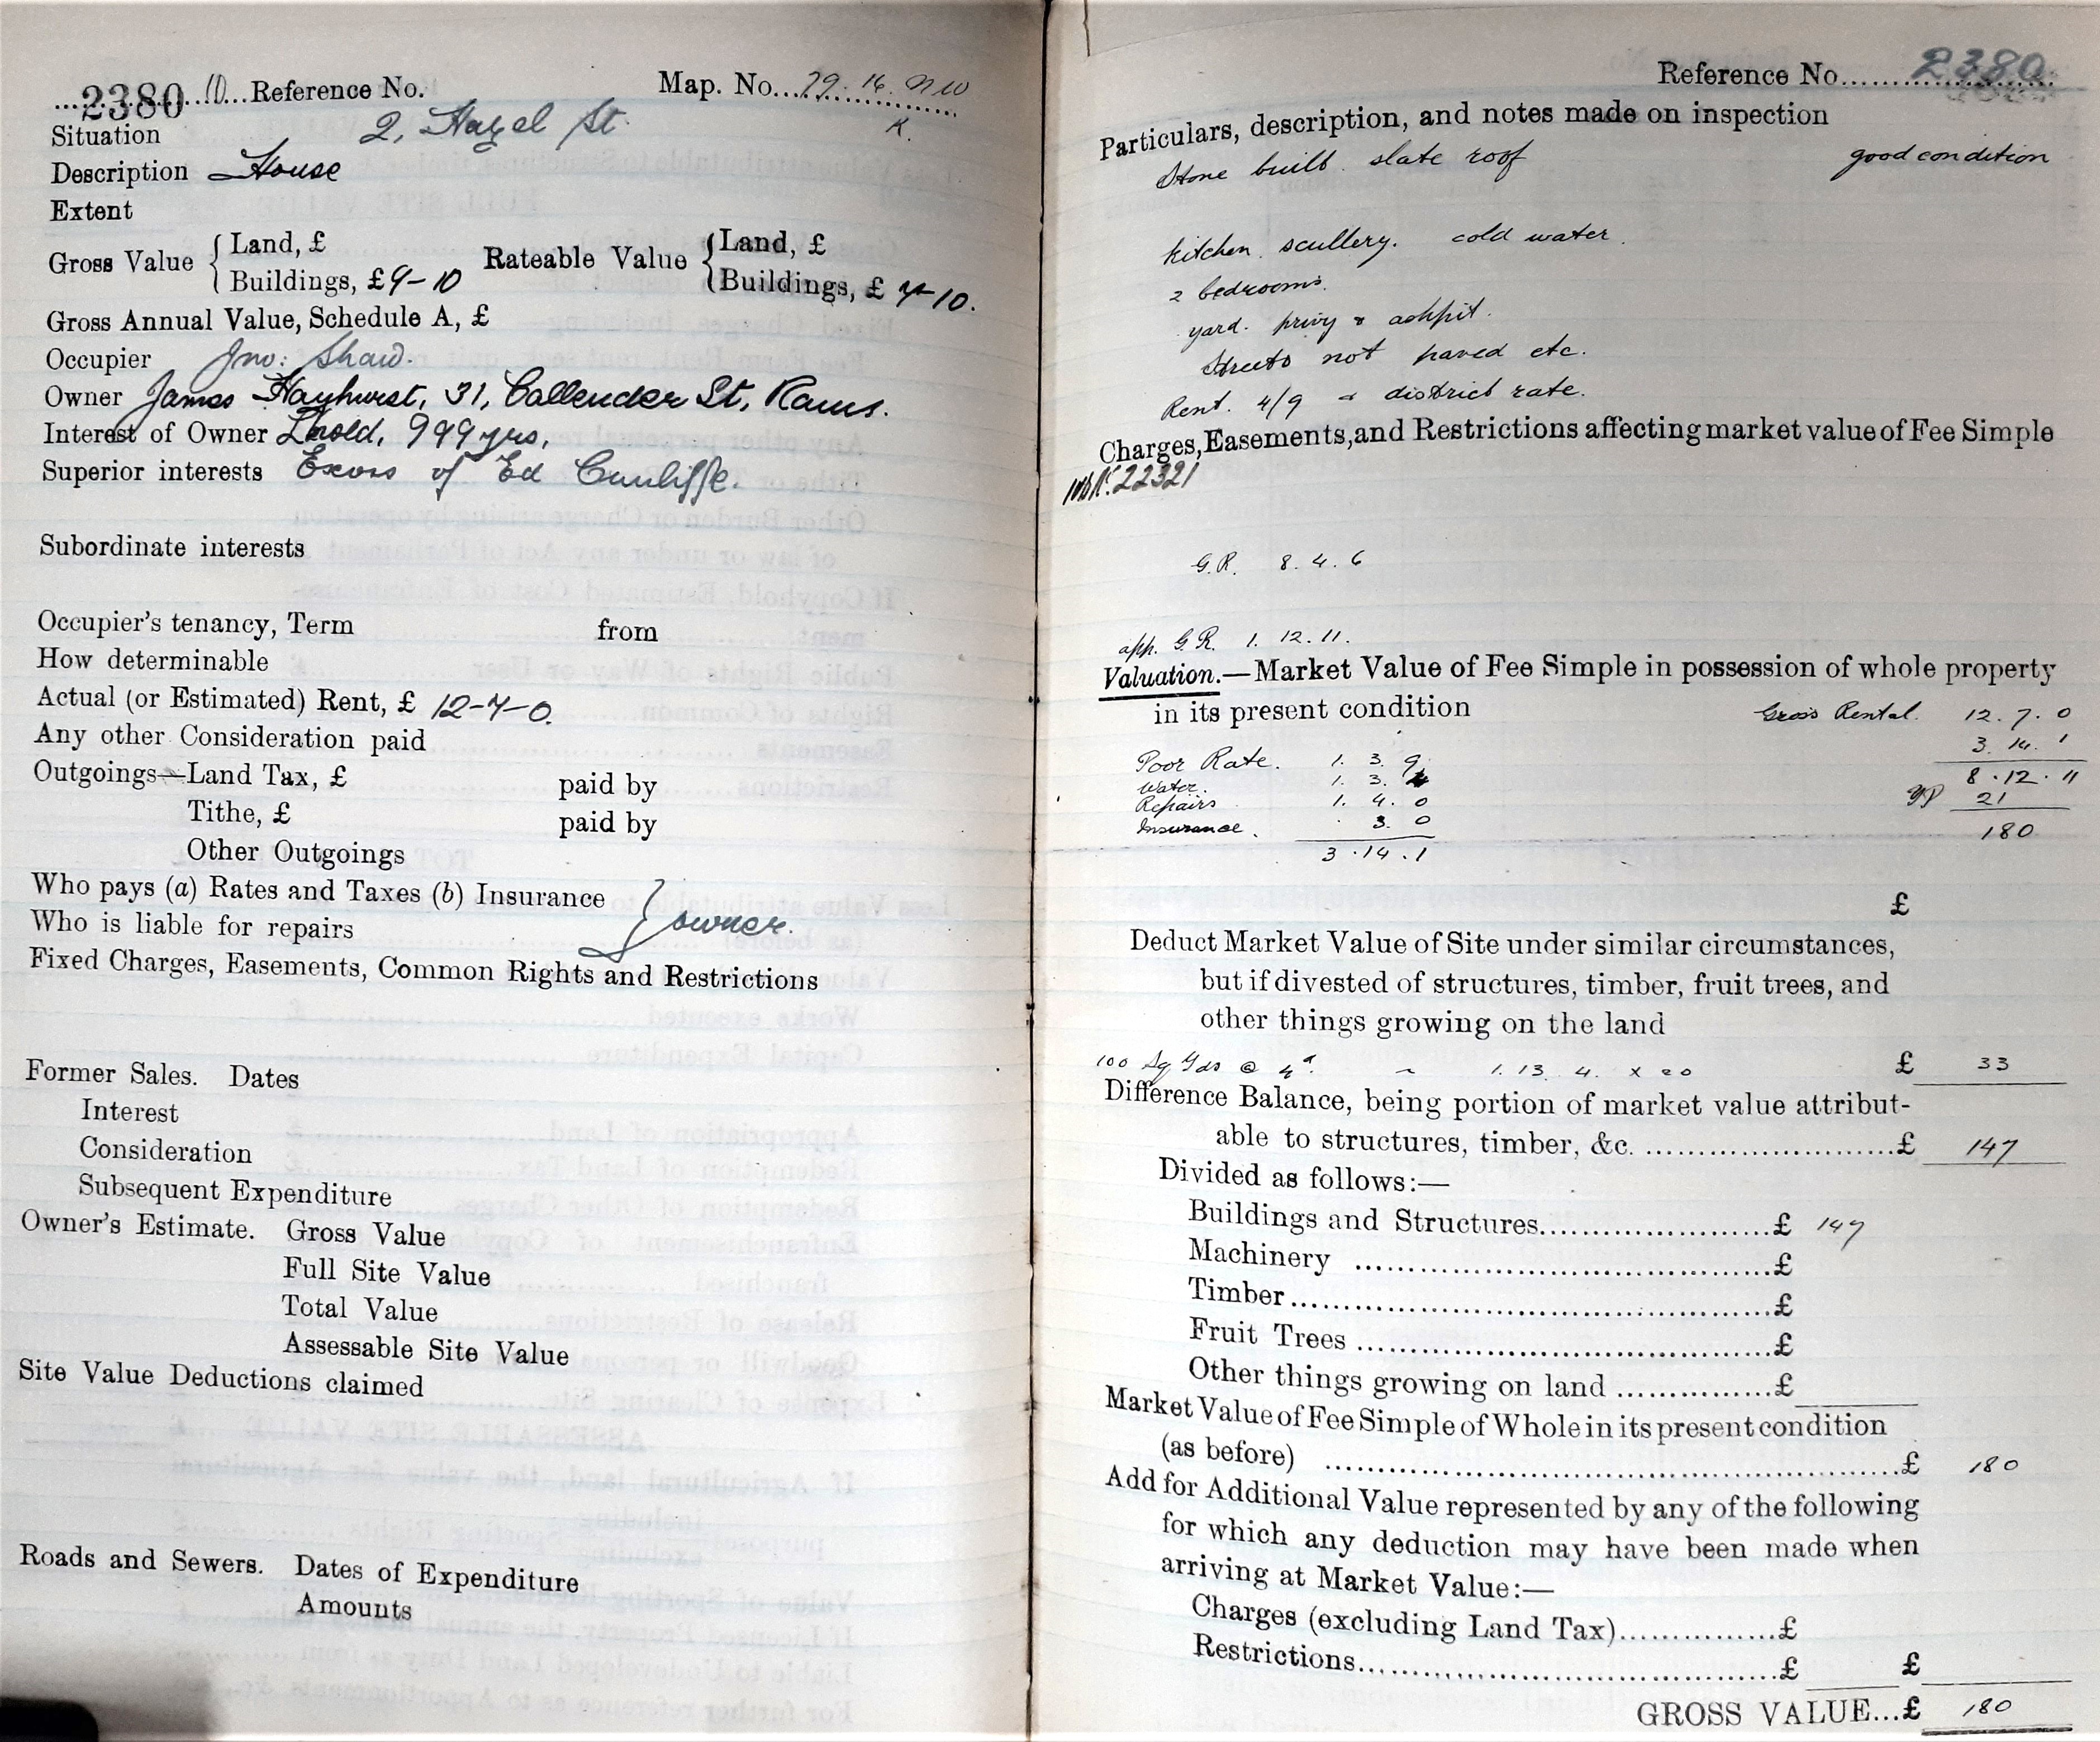 2380 10 Reference No. Map. No. 79. 16. NW
K.
Situation 2, Hazel St.
Description House
Extent
Gross Value { Land, £ Rateable Value { Land, £
Buildings, £ 9-10 Buildings, £ 7-10.
Gross Annual Value, Schedule A, £
Occupier Jno: Shaw.
Owner James Hayhurst, 31, Callender St, Rams.
Interest of Owner Lhold, 999 yrs,
Superior interests Exors of Ed Cunliffe.
Subordinate interests
Occupier's tenancy, Term from
How determinable
Actual (or Estimated) Rent, £ 12-7-0.
Any other Consideration paid
Outgoings—Land Tax, £ paid by
Tithe, £ paid by
Other Outgoings
Who pays (a) Rates and Taxes (b) Insurance
Who is liable for repairs } owner.
Fixed Charges, Easements, Common Rights and Restrictions
Former Sales. Dates
Interest
Consideration
Subsequent Expenditure
Owner's Estimate. Gross Value
Full Site Value
Total Value
Assessable Site Value
Site Value Deductions claimed
Roads and Sewers. Dates of Expenditure
Amounts
Reference No. 2380
Particulars, description, and notes made on inspection
Stone built slate roof good condition
kitchen. scullery. cold water.
2 bedrooms.
yard. privy & ashpit.
Streets not paved etc.
Rent. 4/9 & district rate.
Charges, Easements, and Restrictions affecting market value of Fee Simple
22321
G.R. 8. 4. 6
app. G.R. 1. 12. 11.
Valuation.—Market Value of Fee Simple in possession of whole property
in its present condition Gross Rental. 12. 7. 0
3. 14. 1
Poor Rate. 1. 3. 9 8. 12. 11
Water. 1. 3. 4 YP 21
Repairs 1. 4. 0 180
Insurance. 3. 0
3. 14. 1
£
Deduct Market Value of Site under similar circumstances,
but if divested of structures, timber, fruit trees, and
other things growing on the land
100 Sq Yds @ 4d. ~ 1. 13. 4. x 20 £ 33
Difference Balance, being portion of market value attribut-
able to structures, timber, &c. £ 147
Divided as follows:—
Buildings and Structures £ 147
Machinery £
Timber £
Fruit Trees £
Other things growing on land £
Market Value of Fee Simple of Whole in its present condition
(as before) £ 180
Add for Additional Value represented by any of the following
for which any deduction may have been made when
arriving at Market Value:—
Charges (excluding Land Tax) £
Restrictions £ £
GROSS VALUE...£ 180